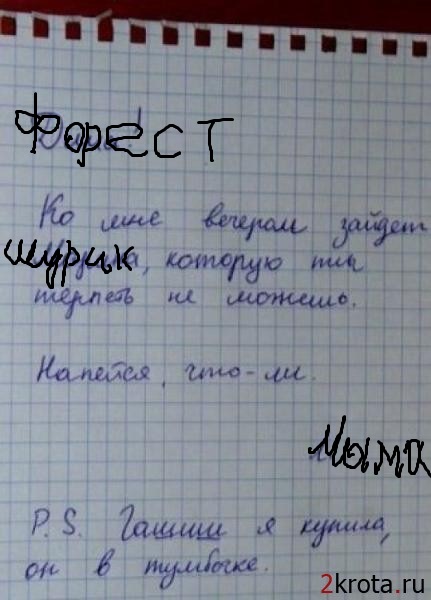 Форест
Ко мне вечером зайдет
шурик, которую ты
терпеть не можешь.
Напейся, что-ли.
Мома
P.S. Гашиш я купила,
он в тумбочке.
2krota.ru